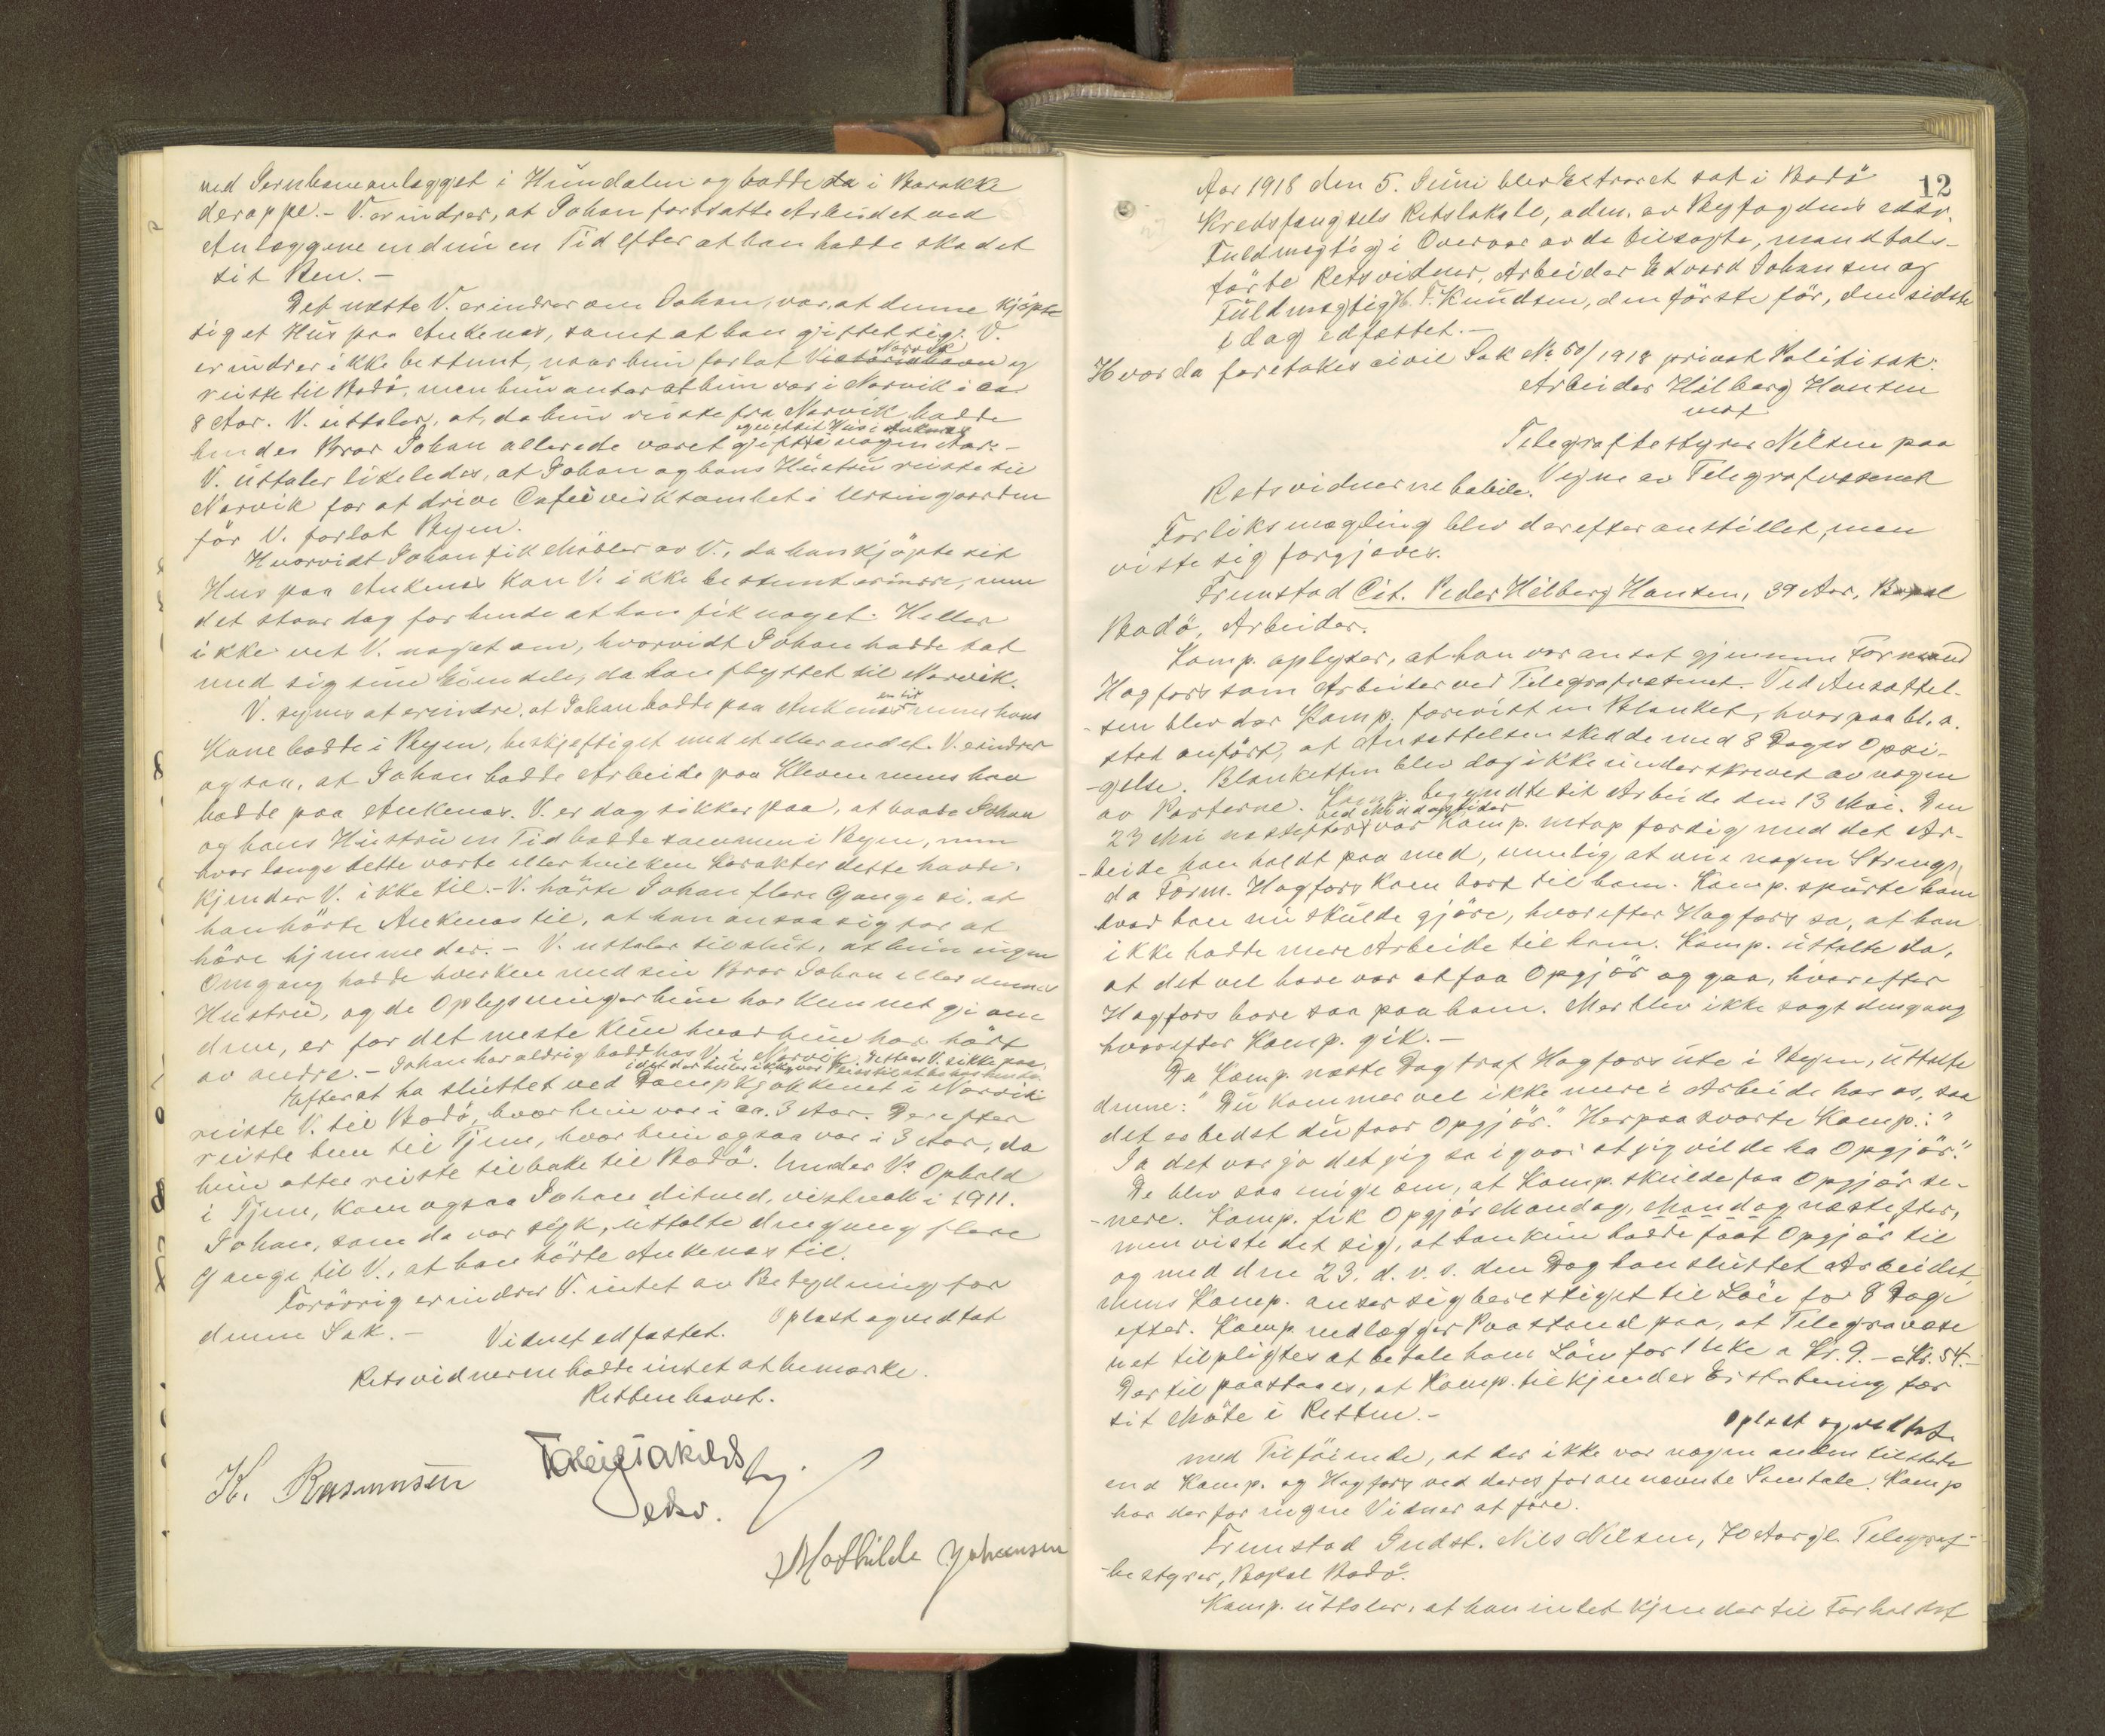 ved Jernbaneanlægget i Hundalen og bodde da i Barakke
deroppe. - V. erindrer, at Johan fortsatte Arbeidet ved
Anlæggene endnu en Tid efter at han hadde skadet
sit Ben. -
Det næste V. erindrer om Johan, var, at denne kjöpte
sig et Hus paa Ankenes, samt at han giftet sig. V.
erindrer ikke bestemt, naar hun forlot Victoriahavn Narvik og
reiste til Bodö, men hun antar at hun var i Narvik i ca.
8 Aar. V. uttaler, at, da hun reiste fra Narvik hadde
hendes Bror Johan allerede været gift og eiet sit Hus i Ankenes i nogen Aar. -
V. uttaler likeledes, at Johan og hans Hustru reiste til
Narvik for at drive Caféivirksomhet i Ursingaarden
för V. forlot Byen.
Hvorvidt Johan fik Möbler av V., da han kjöpte sit
Hus paa Ankenes kan V. ikke bestemt erindre, men
det staar dog for hende at han fik noget. Heller
ikke vet V. noget om, hvorvidt Johan hadde tat
med sig sine Eiendele, da han flyttet til Narvik.
V. synes at erindre, at Johan bodde paa Ankenes en tid mens hans
Kone bodde i Byen, beskjeftiget med et eller andet. V. erindrer
ogsaa, at Johan hadde Arbeide paa Kleven mens han
bodde paa Ankenes. V. er dog sikker paa, at baade Johan
og hans Hustru en Tid bodde sammen i Byen, men
hvor længe dette varte eller hvilken Karakter dette havde,
kjender V. ikke til. - V. hörte Johan flere Gange si, at
han hörte Ankenes til, at han ansaa sig for at
höre hjemme der. - V. uttaler tilslut, at hun ingen
Omgang hadde hverken med sin Bror Johan eller dennes
Hustru, og de Oplysninger hun har kunnet gi om
dem, er for det meste kun hvad hun har hört
av andre. - Johan har aldrig bodd hos V. i Narvik. Dette er V. sikker paa,
Efterat ha sluttet ved Dampkjökkenet i Narvik
reiste V. til Bodö, hvor hun var i ca. 3 Aar. Derefter
reiste hun til Tjem, hvor hun ogsaa var i 3 Aar, da
hun atter reiste tilbake til Bodö. Under V's Ophold
i Tjem, kom ogsaa Johan ditned, vistnok i 1911.
Johan, som da var syk, uttalte dengang flere
Gange til V., at han hörte Ankenes til.
Forövrig erindrer V. intet av Betydning for
denne Sak. - Oplæst og vedtat
Vidnet edfæstet.
Retsvidnerne hadde intet at bemærke.
Retten hævet.
K. Rasmussen
edsv.
Mathilde Johansen
12
Aar 1918 den 5. Juni blev Extraret sat i Bodö
Kredsfængsels Retslokale, adm. av Byfogdens edsv.
Fuldmægtig i Overvær av de tilsagte, mandtals-
förte Retsvidner, Arbeider Edvard Johansen og
Fuldmægtig H. F. Knudsen, den förste för, den sidste
i dag edfæstet. -
Hvor da foretokes civil Sak No 50/1918 privat Politisak:
Arbeider Hilberg Hansen
mot
Telegrafbestyrer Nilsen paa
Vegne av Telegrafvæsenet
Retsvidnerne habile.
Forliksmægling blev derefter anstillet, men
viste sig forgjæves.
Fremstod Cit. Peder Hilberg Hansen, 39 Aar, Bopæl
Bodö, Arbeider.
Komp. oplyser, at han var ansat gjennem Formand
Hagfors som Arbeider ved Telegrafvæsenet. Ved Ansættel-
-sen blev der Komp. forevist en Blanket, hvorpaa bl. a.
stod anfört, at Ansættelsen skedde med 8 Dages Opsi-
-gelse. Blanketten blev dog ikke underskrevet av nogen
av Parterne. Komp. begyndte sit Arbeide den 13 Mai. Den
23 Mai næstefter ved Middagstider var Komp. netop færdig med det Ar-
-beide han holdt paa med, nemlig, at  nogen Strenge,
da Form. Hagfors kom bort til ham. Komp. spurte ham
hvad han nu skulde gjöre, hvorefter Hagfors sa, at han
ikke hadde mere Arbeide til ham. Komp. uttalte da,
at det vel bare var at faa Opgjör og gaa, hvorefter
Hagfors bare saa paa ham. Mer blev ikke sagt dengang
hvorefter Komp. gik. -
Da Komp. næste Dag traf Hagfors ute i Byen, uttalte
denne: "Du kommer vel ikke mere i Arbeide hos os, saa
det er bedst du faar Opgjör". Herpaa svarte Komp.: "
Ja det var jo det jeg sa igaar at jeg vilde ha Opgjör".
De blev saa enige om, at Komp. skulde faa Opgjör se-
-nere. Komp. fik Opgjör Mandag, Mandag næstefter,
men viste det sig, at han kun hadde faat Opgjör til
og med den 23. d. v. s. den Dag han sluttet Arbeidet,
mens Komp. anser sig berettiget til Lön for 8 Dage
efter. Komp. nedlægger Paastand paa, at Telegravæse
net tilpligtes at betale ham Lön for 1 Uke a Kr. 9. - Kr. 54. -
Dertil paastaaes, at Komp. tilkjendes Erstatning for
sit Möte i Retten. -
Oplæst og vedtat
med Tilföiende, at der ikke var nogen anden tilstede
end Komp. og Hagfors ved deres forannævnte Samtale. Komp
har derfor ingen Vidner at före.
Fremstod Indst. Nils Nilsen, 70 Aar gl. Telegraf-
-bestyrer, Bopæl Bodö.
Komp. uttaler, at han intet kjender til Forholdet